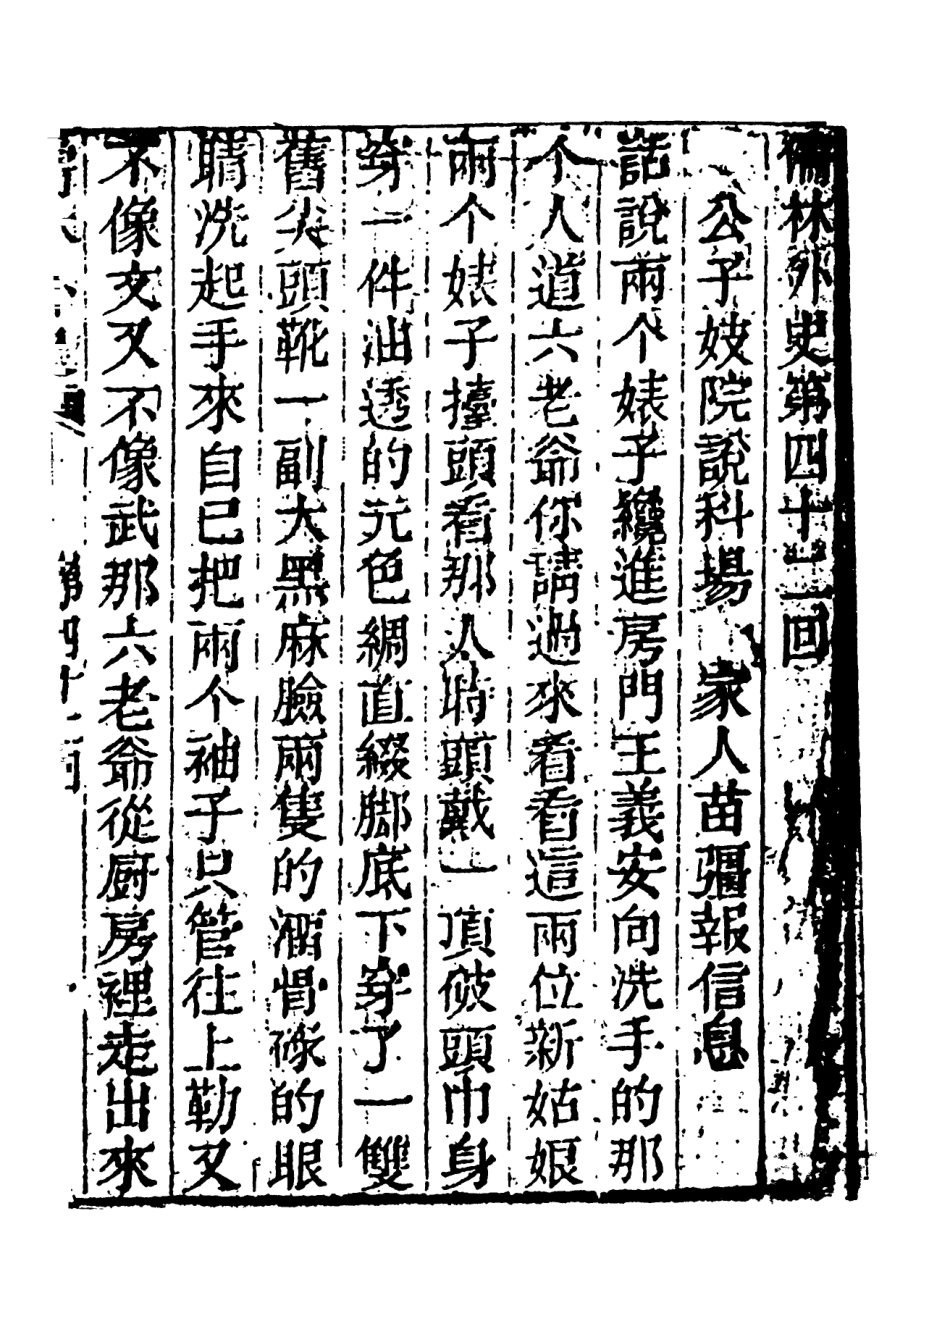 儒林外史第四十二回
公子妓院說科場　家人苗疆報信息
話說兩个婊子纔進房門王義安向洗手的那
个人道六老爺你請過來看看這兩位新姑娘
兩个婊子擡頭看那人時頭戴一頂破頭巾身
穿一件油透的元色綢直綴脚底下穿了一雙
舊尖頭靴一副大黑麻臉兩隻的溜骨碌的眼
睛洗起手來自已把兩个袖子只管往上勒又
不像文又不像武那六老爺從厨房裡走出來
第四十二回